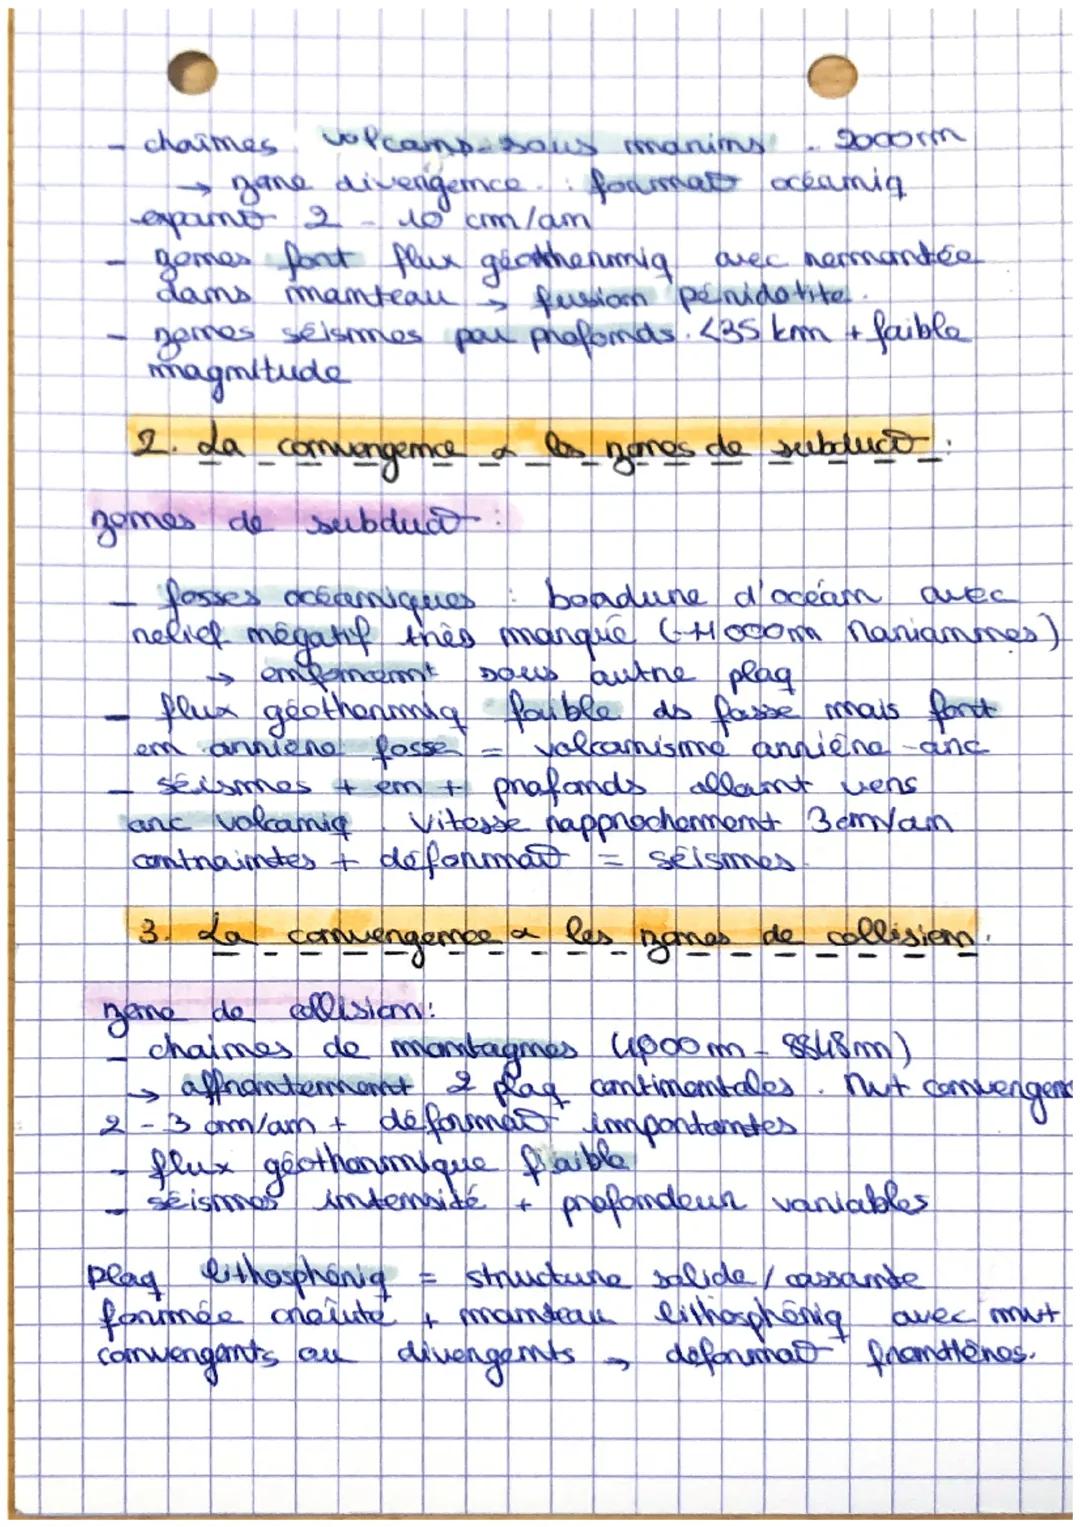 - chaînes volcans sous marins . 2000m
→ zone divergence : format° océaniq
expans° 2 - 10 cm/an
- zones fort flux géothermiq avec remontée
dans manteau → fusion péridotite.
- zones séismes peu profonds. <35 km + faible
magnitude
2. La convergence & les zones de subduct° :
zones de subduct° :
- fosses océaniques : bordure d'océan avec
relief négatif très marqué (-11000m Mariannes)
→ enfoncemt sous autre plaq
- flux géothermiq faible ds fosse mais fort
en arrière fosse = volcanisme arrière-arc
- séismes + en + profonds allant vers
arc volcaniq . Vitesse rapprochement 3cm/an
contraintes + déformat° = séismes.
3. La convergence & les zones de collision.
zone de collision:
- chaînes de montagnes (4000m - 8848m)
→ affrontement 2 plaq continentales . mvt convergent
2 - 3 cm/an + déformat° importantes
- flux géothermique faible
- séismes intensité + profondeur variables
Plaq lithosphériq = structure solide / cassante
formée croûte + manteau lithosphériq avec mvt
convergents ou divergents → déformat° frontières.